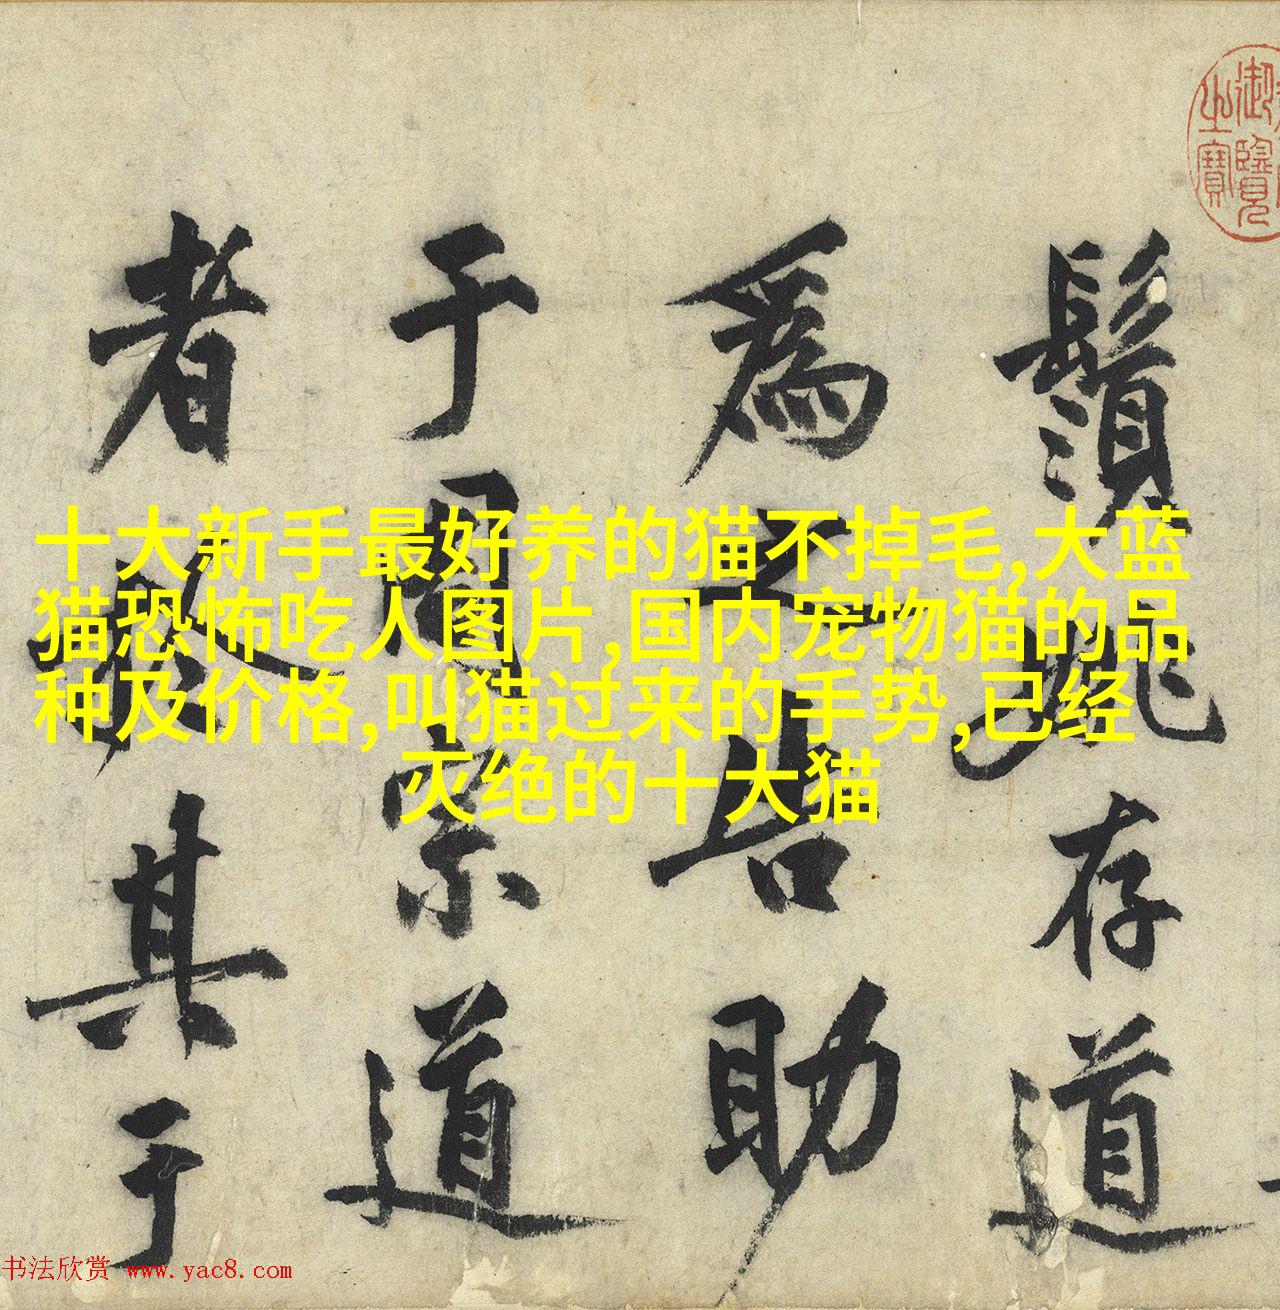 十大新手最好养的猫不掉毛,大蓝
猫恐怖吃人图片,国内宠物猫的品
种及价格,叫猫过来的手势,已经
灭绝的十大猫
鬚存道
為告助
于周宗道
者其于
御覽
之寶
书法欣赏 www.yac8.com